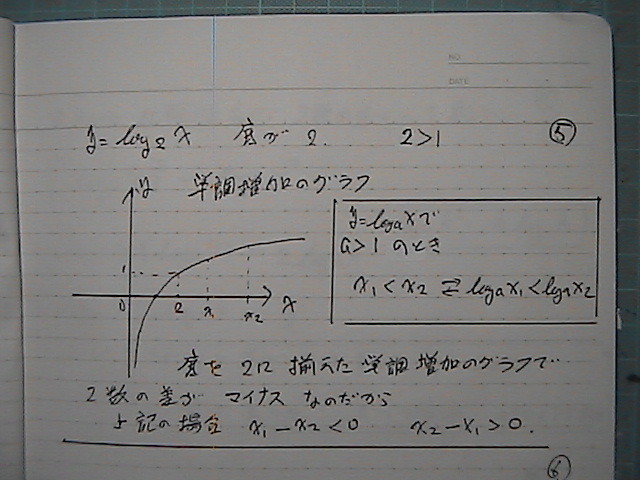 NO.
DATE
y=log₂x 底が 2. 2>1 ⑤
y 単調増加のグラフ
1
0 2 x₁ x₂ x
y=logₐxで
a>1 のとき
x₁<x₂ ⇄ logₐx₁<logₐx₂
底を 2に 揃えた 単調増加のグラフで
2数の差が マイナス なのだから
上記の場合 x₁-x₂<0 x₂-x₁>0.
⑥